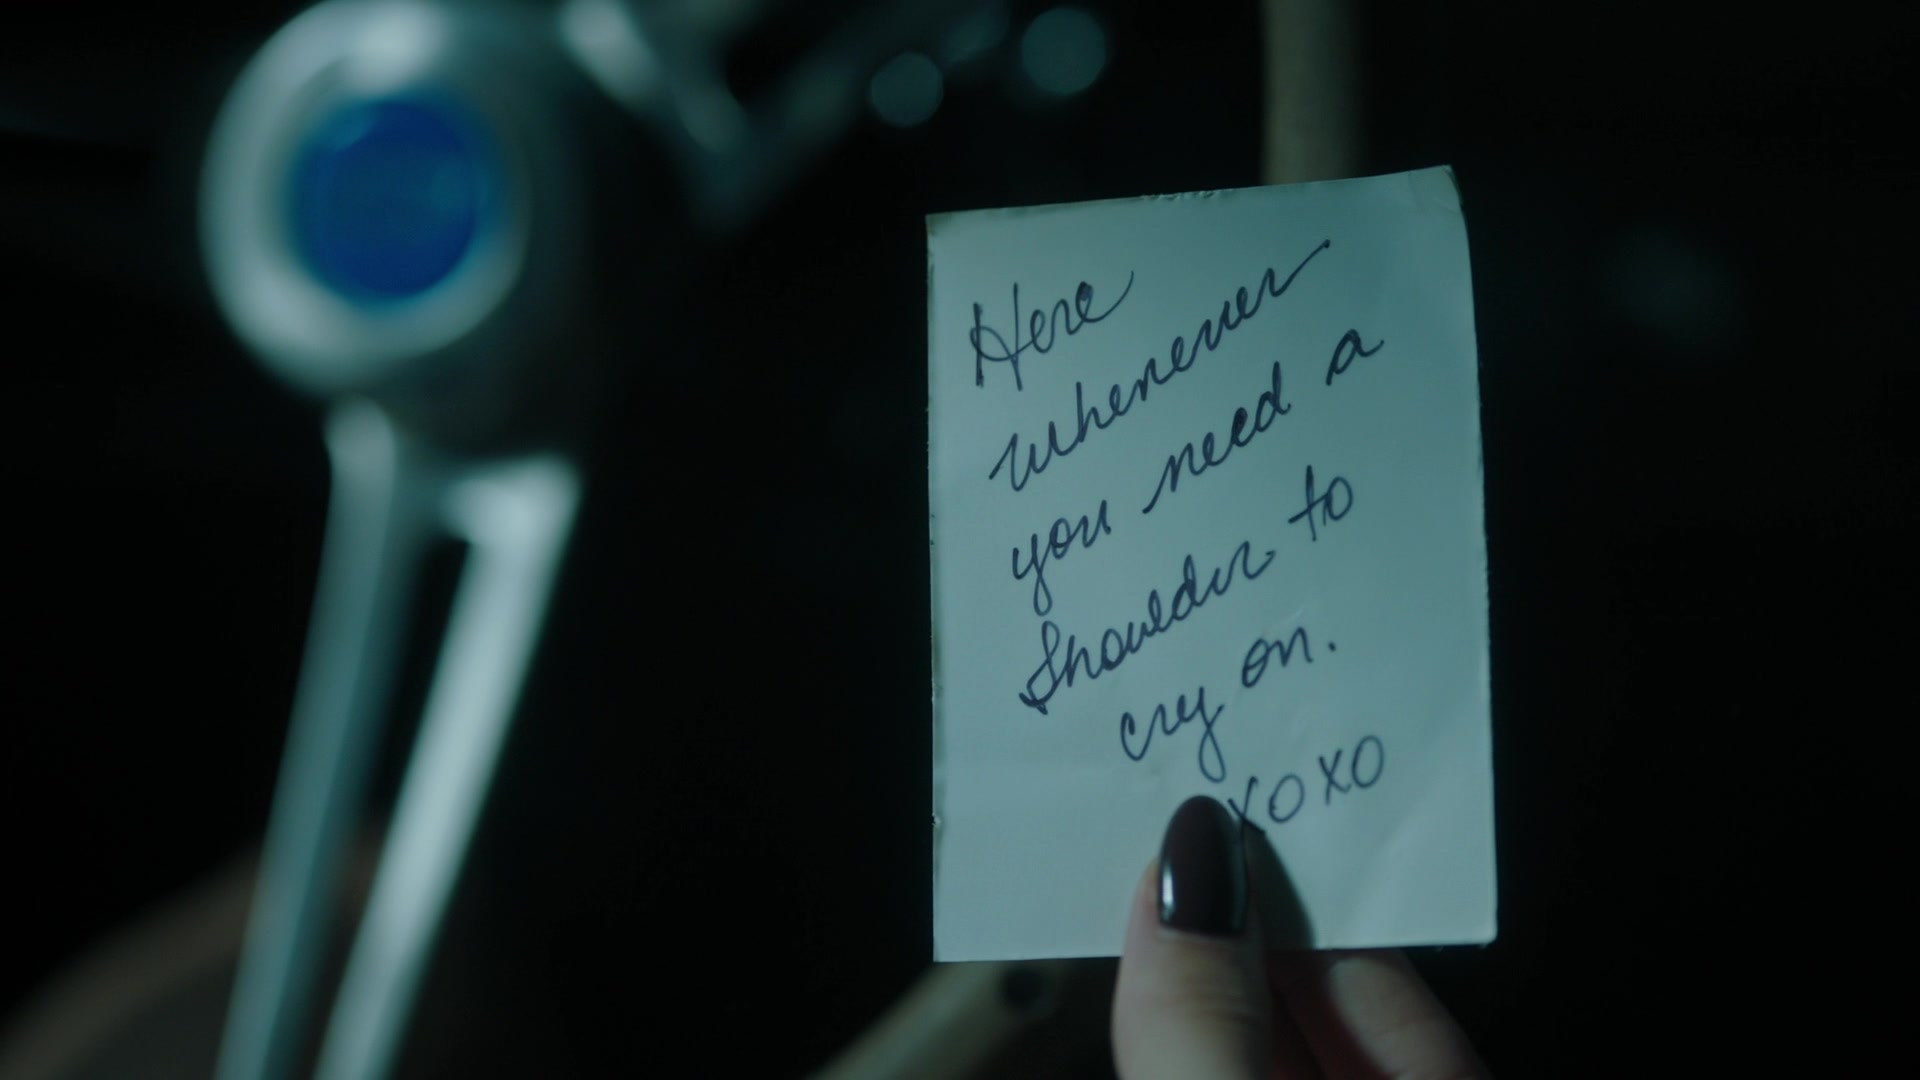 Here
whenever
you need a
Shoulder to
cry on.
XOXO